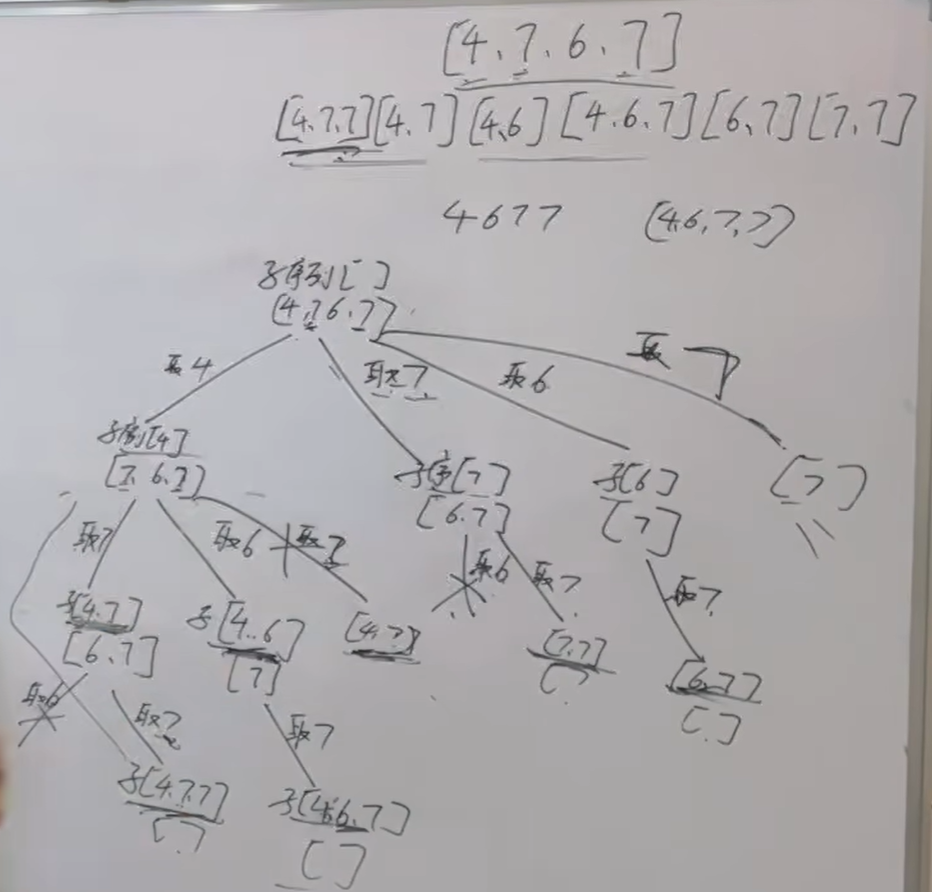 [4.7.6.7]
[4.7.7][4.7][4.6][4.6.7][6.7][7.7]
4677 [4.6.7.7]
子序列[ ]
[4.7 6.7]
取4 取7 取6 取7
子序列[4] 子序[7] 子[6] [7]
[7.6.7] [6.7] [7]
取7 取6 取7 取6 取7 取7
子[4.7] 子[4..6] [4.7] [7.7] [6.7]
[6.7] [7] [ ] [.]
取6 取7 取7
子[4.7.7] 子[4.6.7]
[.] [ ]